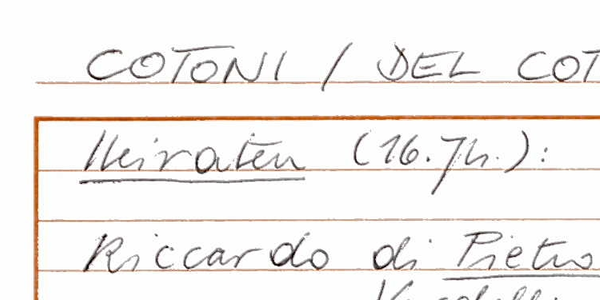 COTONI / DEL COT
Heiraten (16. Jh.):
Riccardo di Pietro